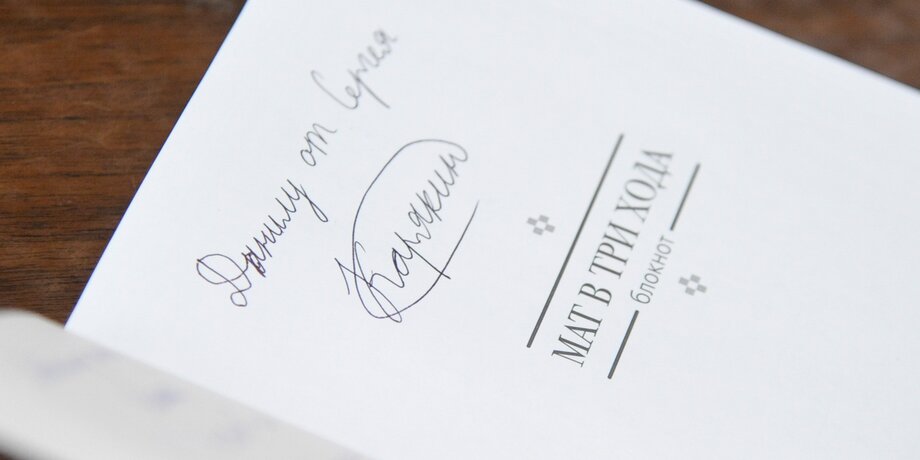 Данилу от Сергея
Карякин
МАТ В ТРИ ХОДА
блокнот